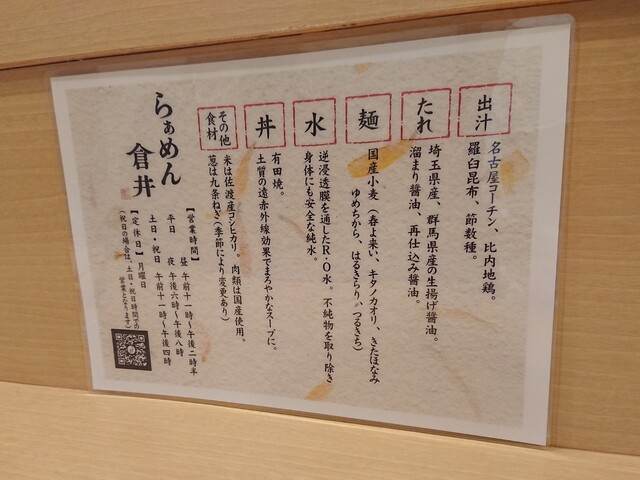 出汁
名古屋コーチン、比内地鶏。
羅臼昆布、節数種。
たれ
埼玉県産、群馬県産の生揚げ醤油。
溜まり醤油、再仕込み醤油。
麺
国産小麦(春よ来い、キタノカオリ、きたほなみ
ゆめちから、はるきらり、つるきち)
水
逆浸透膜を通したR・O水。不純物を取り除き
身体にも安全な純水。
丼
有田焼。
土質の遠赤外線効果でまろやかなスープに。
その他
食材
米は佐渡産コシヒカリ。肉類は国産使用。
葱は九条ねぎ(季節により変更あり)
らぁめん
倉井
【営業時間】
平日 昼 午前十一時〜午後二時半
夜 午後六時〜午後八時
土日・祝日 午前十一時〜午後四時
【定休日】月曜日
(祝日の場合は、土日・祝日時間での
営業となります)